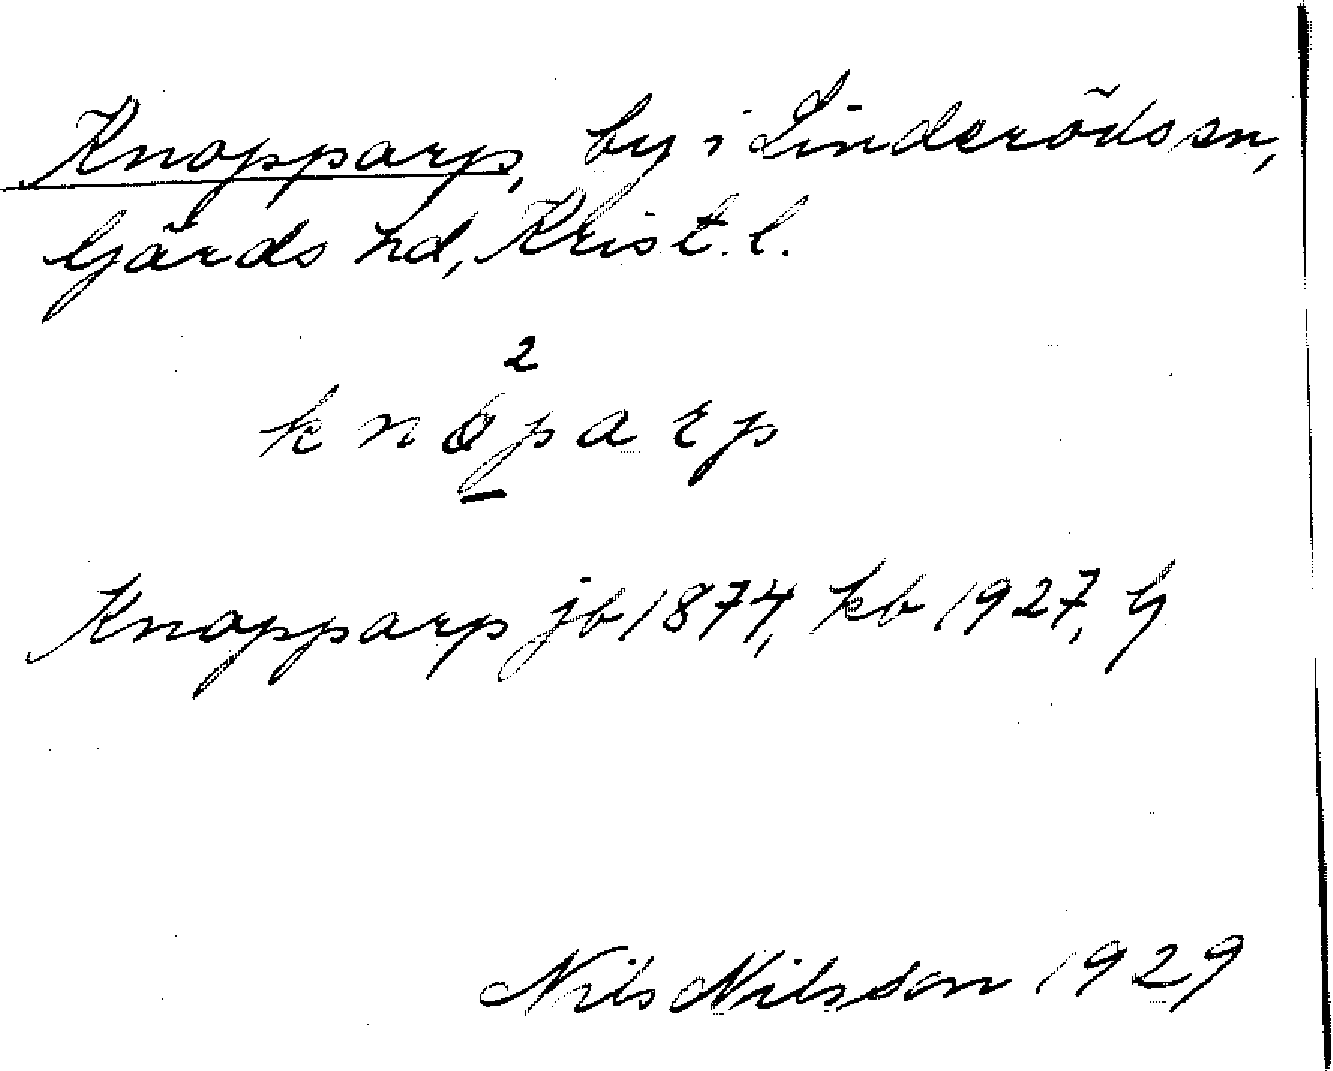 Knopparp, by i Linderöds sn,
Gärds hd, Krist. l.
2
knöparp
Knopparp jb 1874, kb 1927, G
Nils Nilsson 1929